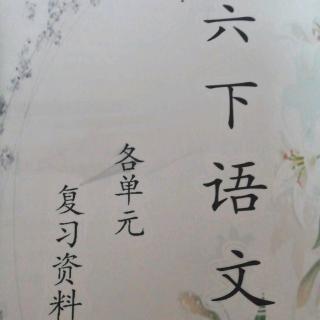 六下语文
各单元
复习资料